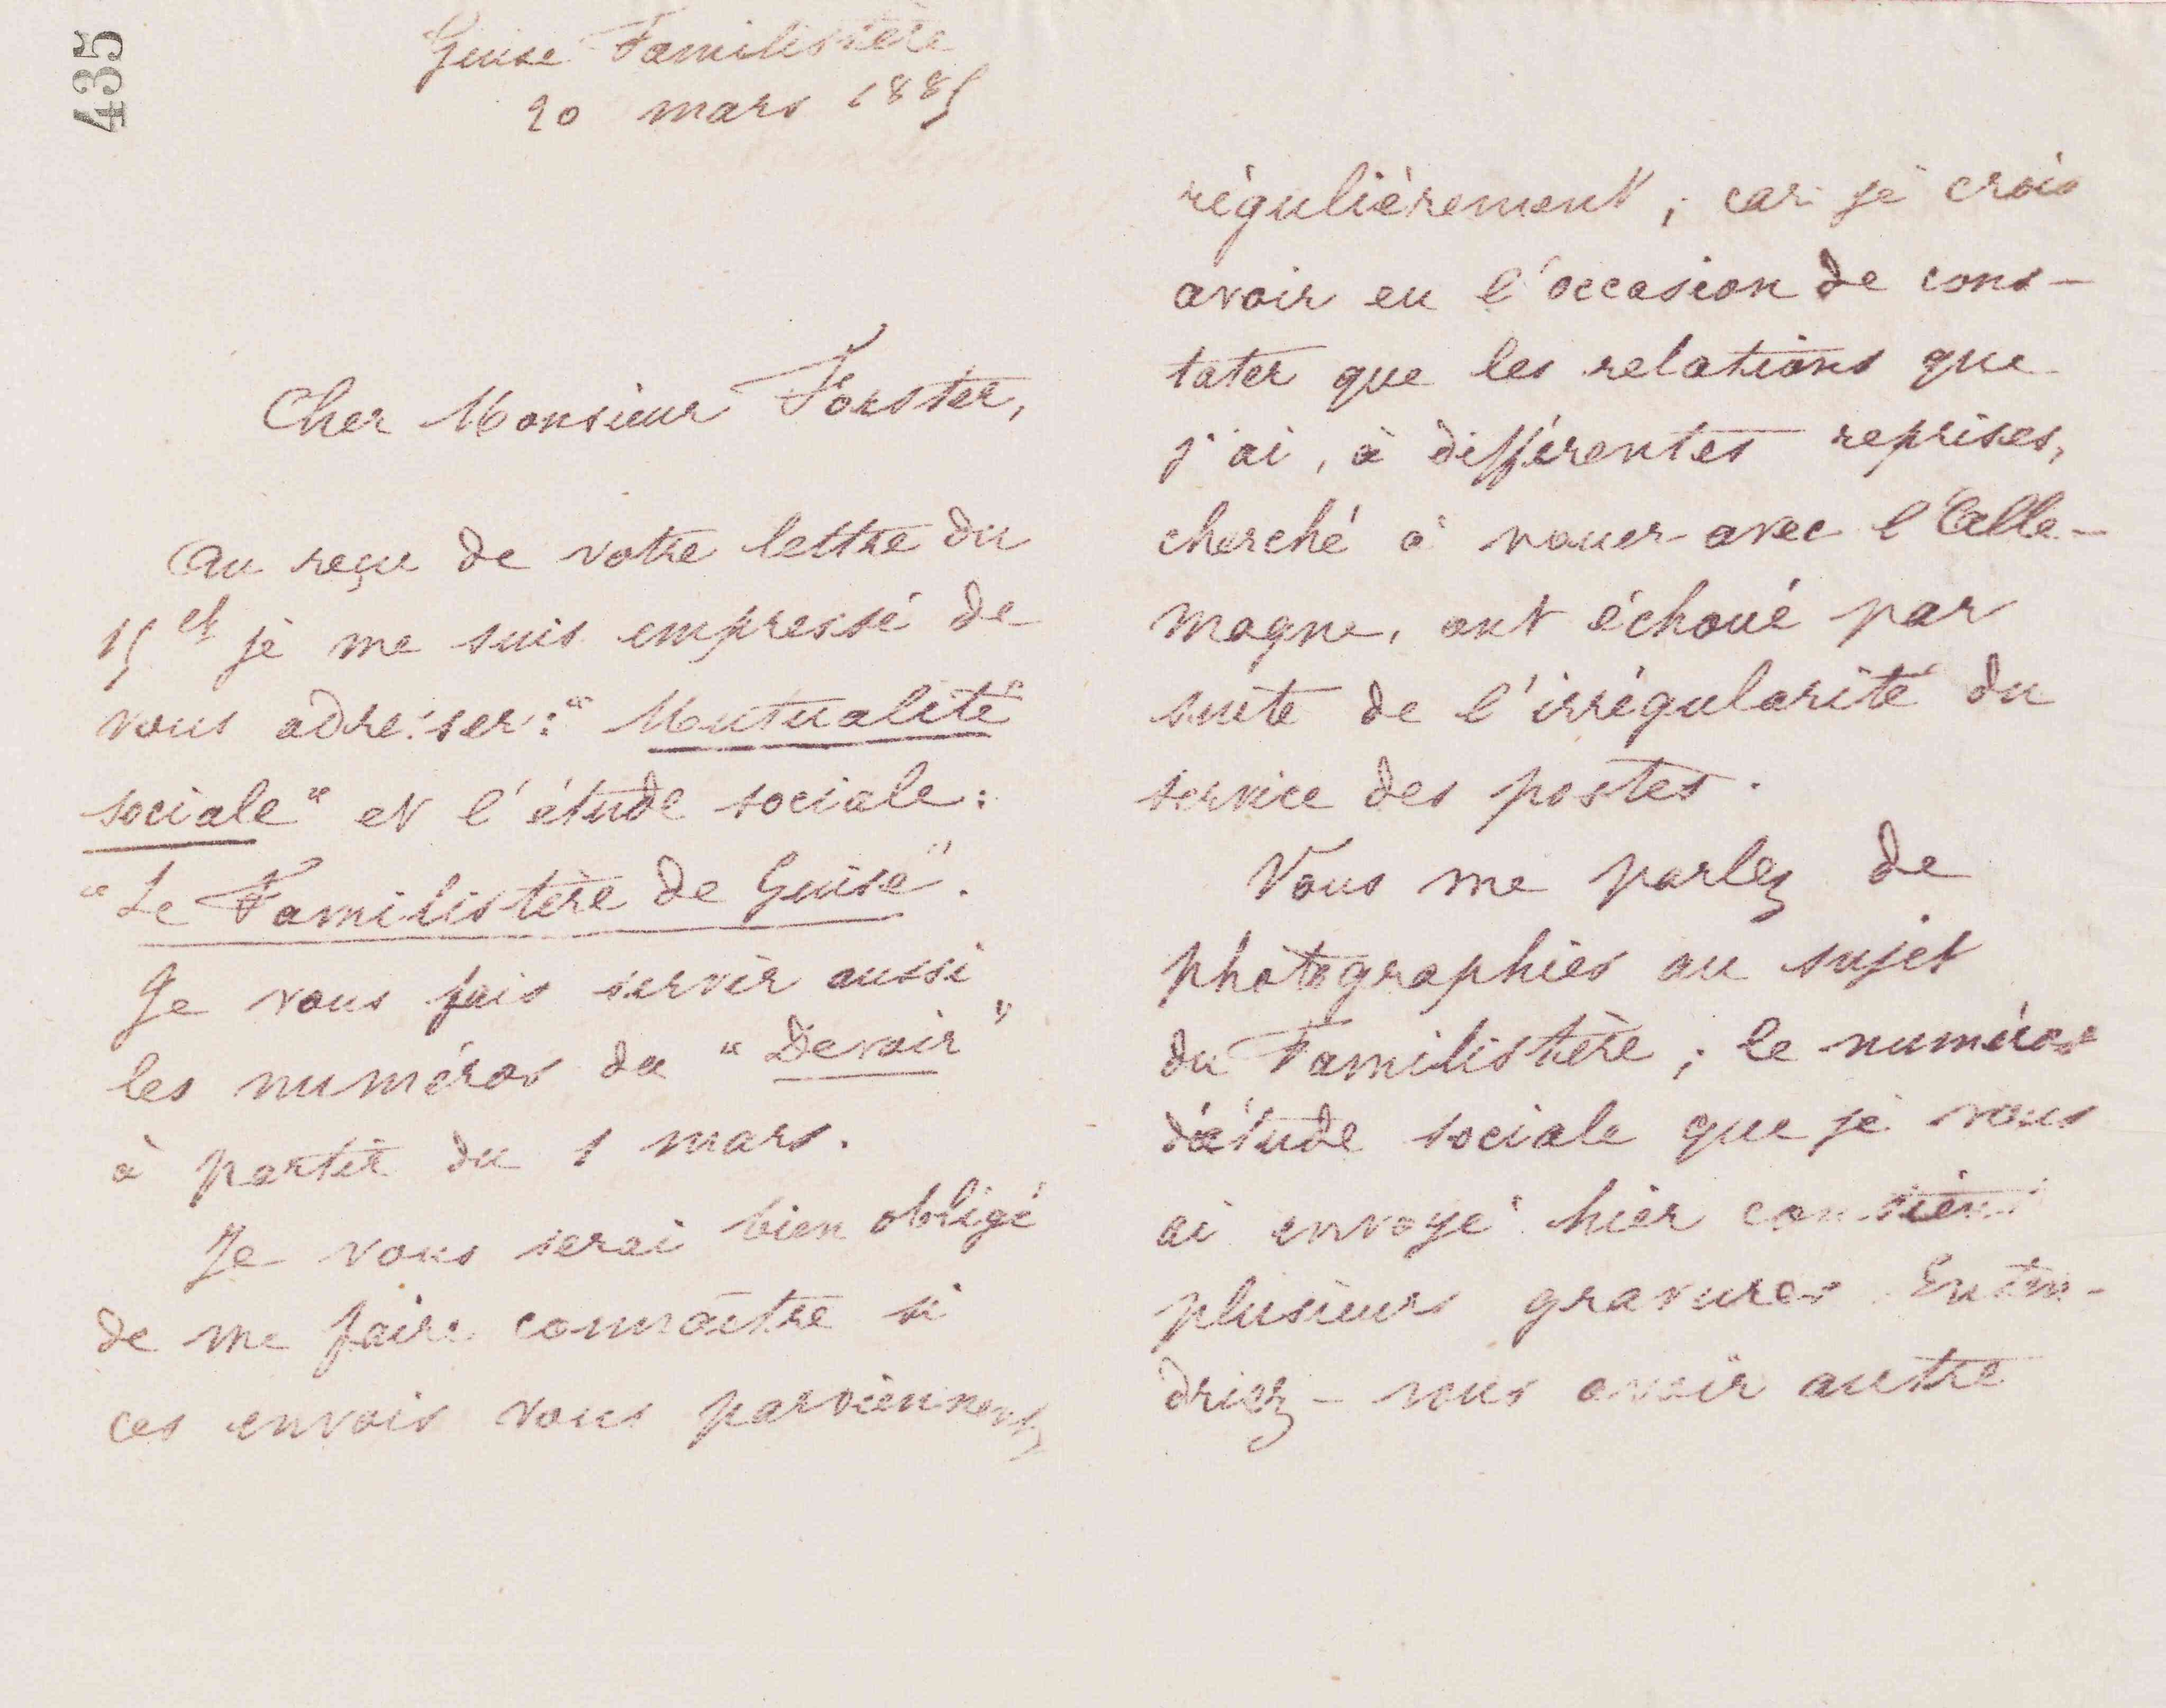 435
Guise Familistère
20 mars 1885
Cher Monsieur Forster,
Au reçu de votre lettre du
15 ct je me suis empressé de
vous adresser: "Mutualité
sociale" et l'étude sociale:
"Le Familistère de Guise".
Je vous fais servir aussi
les numéros du "Devoir"
à partir du 1 mars.
Je vous serai bien obligé
de me faire connaître si
ces envois vous parviennent
régulièrement; car je crois
avoir eu l'occasion de cons-
tater que les relations que
j'ai, à différentes reprises,
cherché à nouer avec l'Alle-
magne, ont échoué par
suite de l'irrégularité du
service des postes.
Vous me parlez de
photographies au sujet
du Familistère; le numéro
d'étude sociale que je vous
ai envoyé hier contient
plusieurs gravures. Enten-
driez-vous avoir autre